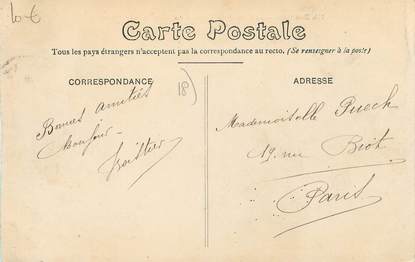 10€
Carte Postale
Tous les pays étrangers n'acceptent pas la correspondance au recto. (Se renseigner à la poste)
CORRESPONDANCE
18
Bonnes amitiés
Bonjour
ADRESSE
Mademoiselle Puech
19 rue Biot
Paris